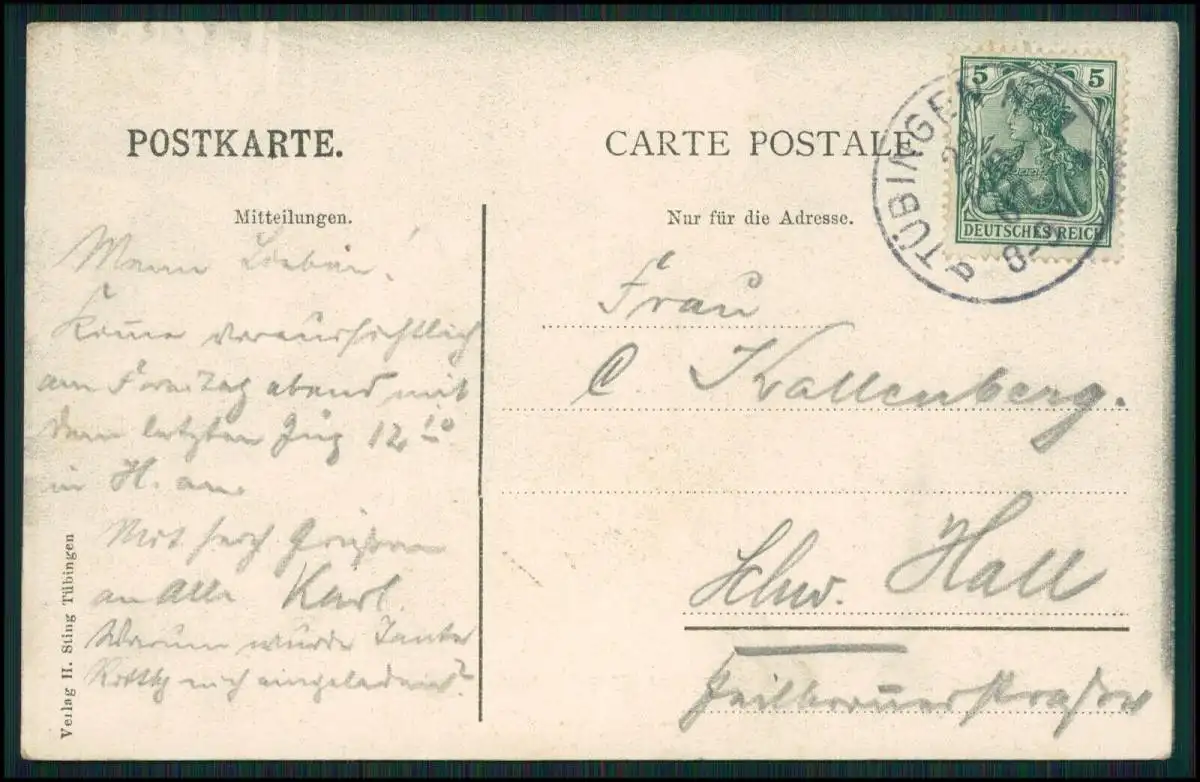 POSTKARTE.
CARTE POSTALE
Mitteilungen.
Nur für die Adresse.
5 5
DEUTSCHES REICH
TÜBINGEN
8-9
Mein Lieben!
Komme voraussichtlich
am Freitag abend mit
dem letzten Zug 12 10
in H. an.
Mit herz Grüßen
an alle Karl.
Warum wurde Tante
eingeladen?
Frau
C Kallenberg.
Schw. Hall
Heilbronnerstraße
Verlag H. Sting Tübingen